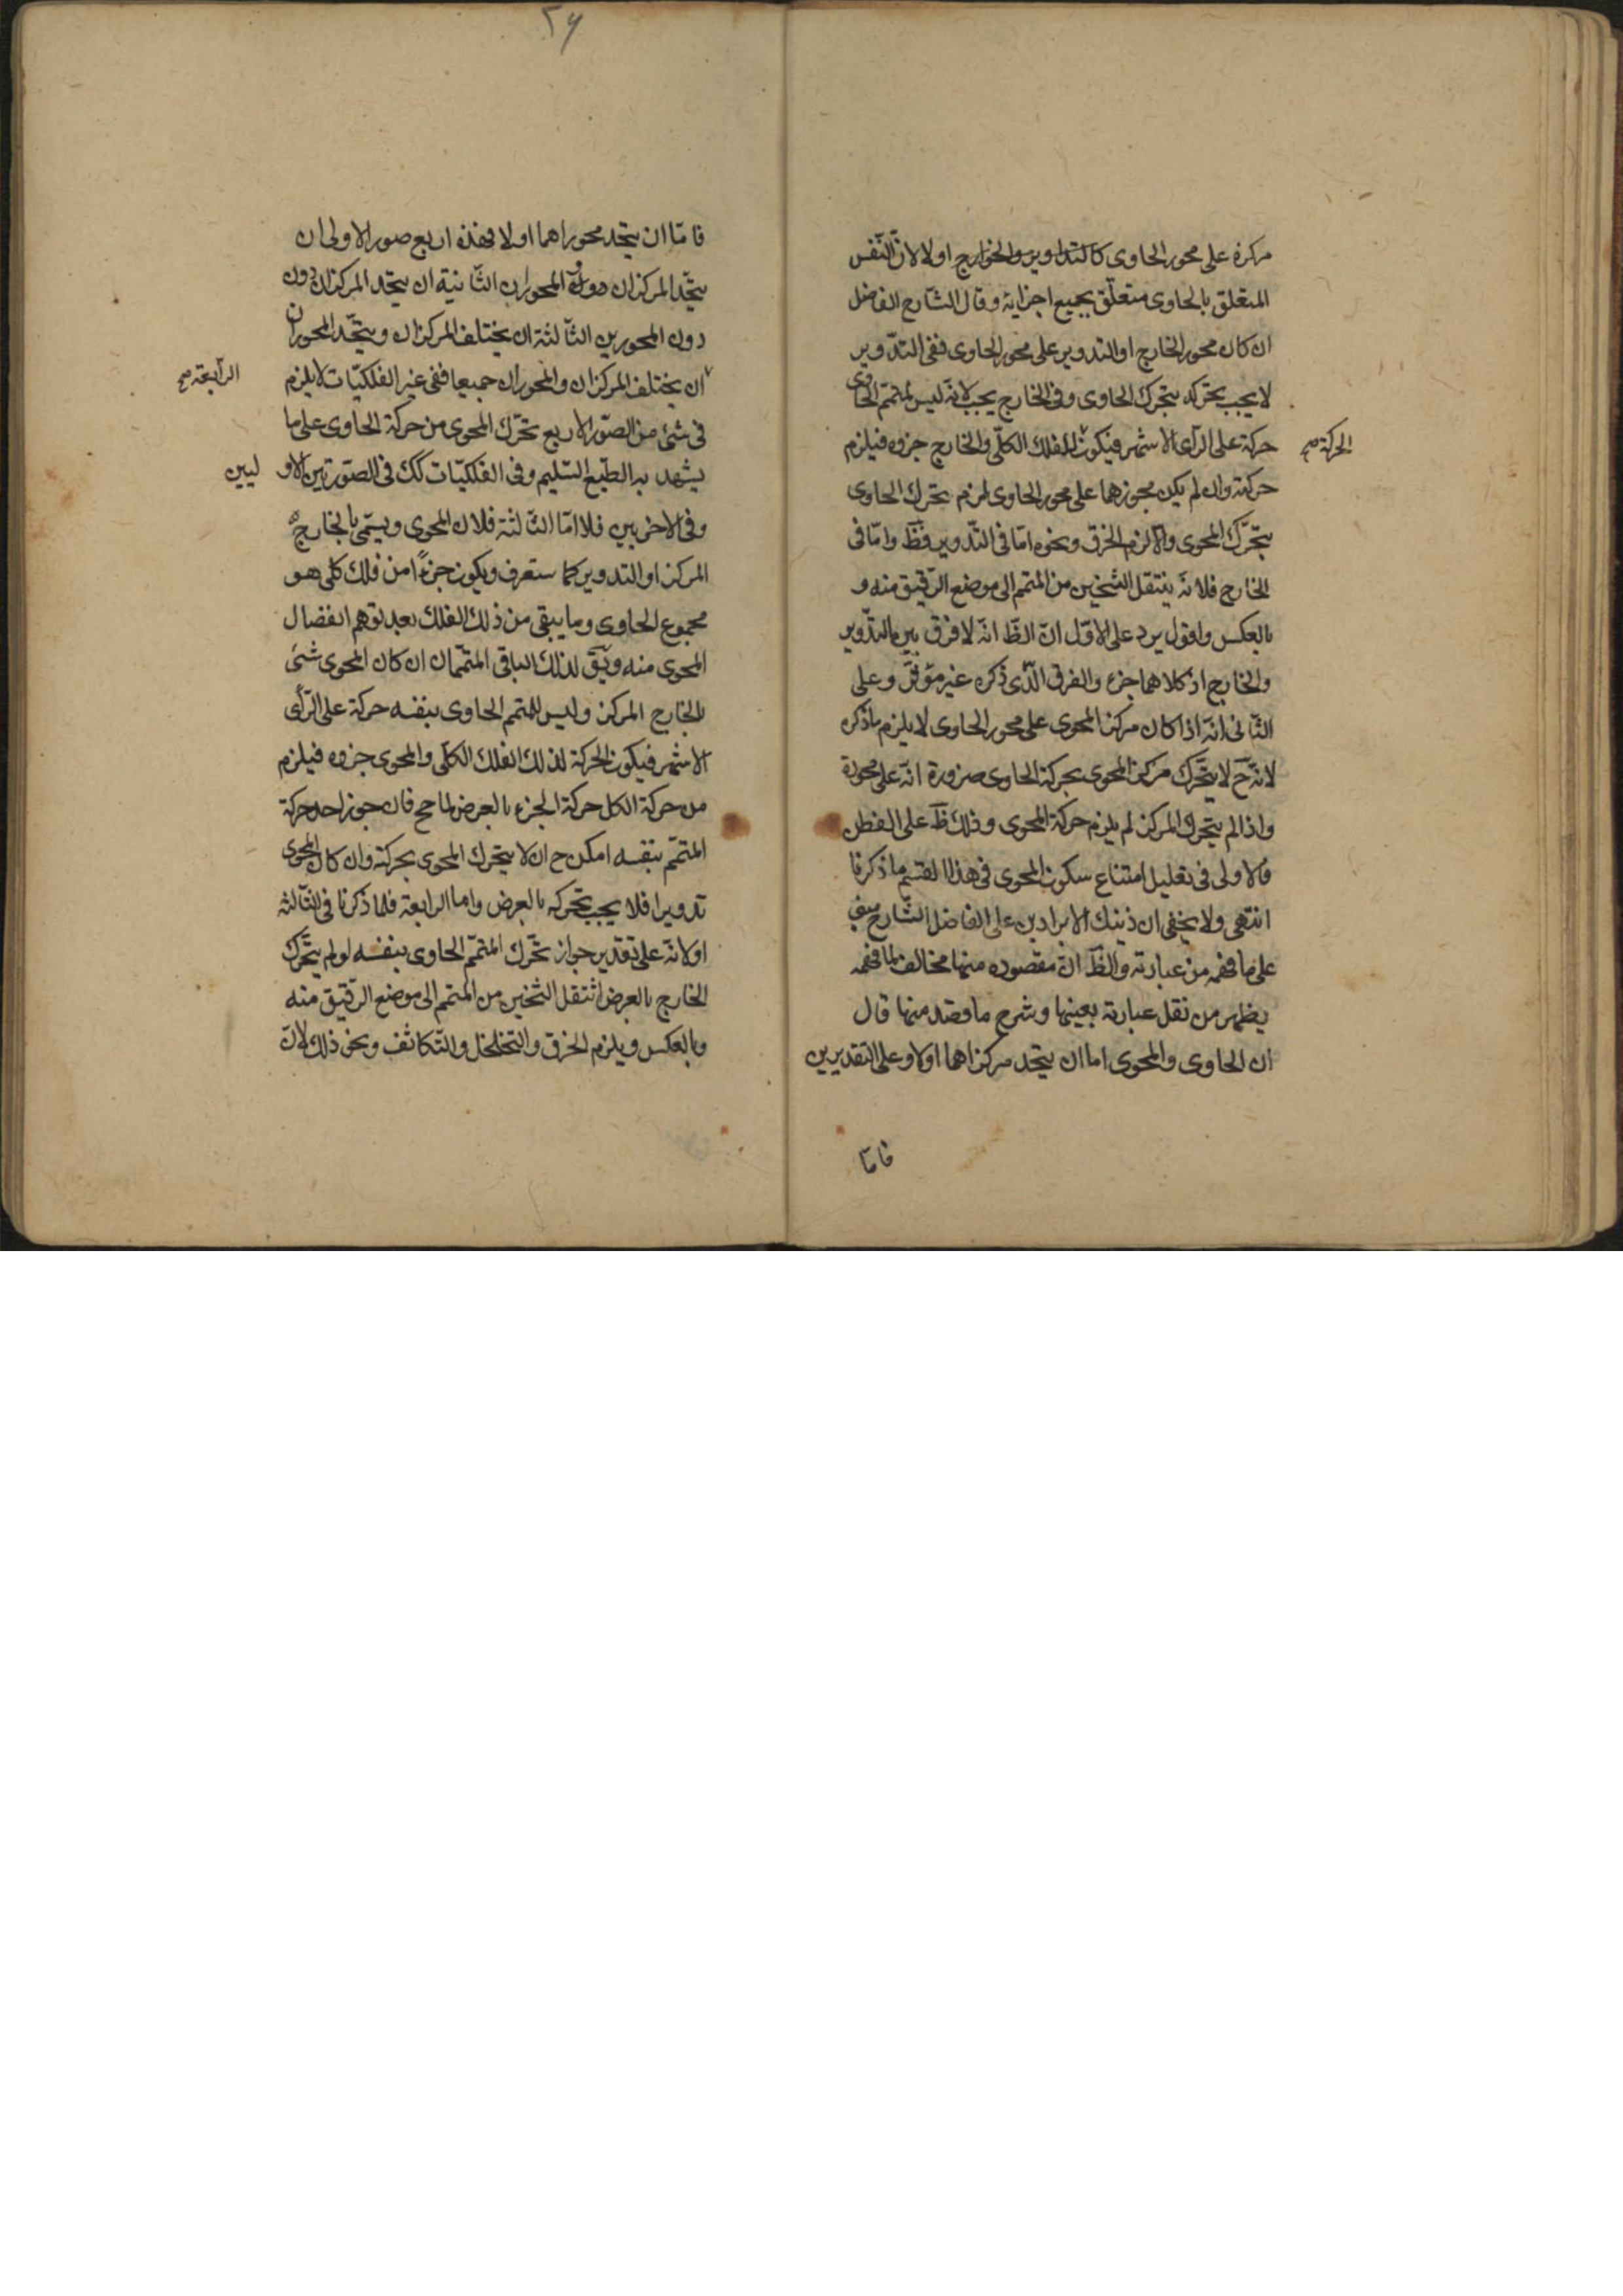 مركزه على محور الحاوى كالتداوير والخوارج اولا لان النفس
المتعلق بالحاوى متعلق بجميع اجزائه وقال الشارح الفاضل
ان كان محور الخارج او التدوير على محور الحاوى ففى التدوير
لا يجب تحركه بتحرك الحاوى وفى الخارج يجب لانه ليس لمتمم الحاوى
حركة على الرأى الاشهر فيكون للفلك الكلّى والخارج جزوه فيلزم
الحركة صح
حركته وان لم يكن محورهما على محور الحاوى لزم تحرك الحاوى
بتحرّك المحوى والا لزم الخرق ونحوه امّا فى التّدوير فظَ وامّا فى
الخارج فلانه ينتقل الثخين من المتمم الى موضع الرّقيق منه و
بالعكس واقول يرد على الاوّل انّ الظَ انّه لا فرق بين التدّوير
والخارج اذ كلاهما جزء والفرق الّذى ذكره غير مؤثّر وعلى
الثّانى انّه اذا كان مركز المحوى على محور الحاوى لا يلزم ما ذكره
لانّه حَ لا يتحّرك مركز المحوى بحركة الحاوى ضرورة انّه على محوره
واذا لم يتحرك المركز لم يلزم حركة المحوى وذلك ظَ على الفطن
فالاولى فى تعليل امتناع سكون المحوى فى هذا القسم ما ذكرنا
انتهى ولا يخفى ان ذينك الايرادين على الفاضل الشّارح مبنى
على ما فهمه من عبارته والظَ انّ مقصوده منها مخالف لما فهمه
يظهر من نقل عبارته بعينها وشرح ما قصد منها قال
ان الحاوى والمحوى اما ان يتحد مركزاهما اولا وعلى التقديرين
فامّا
٢٦
فامّا ان يتحد محوراهما اولا فهذه اربع صور الاولى ان
يتحّد المركزان والمحوران الثّانية ان يتحد المركزان دون
دون المحورين الثّالثة ان يختلف المركزان ويتحّد المحوران
الرّابعة صح
ان يختلف المركزان والمحوران جميعا ففى غير الفلكيّات لا يلزم
فى شئ من الصّور الاربع تحرّك المحوى من حركة الحاوى على ما
يشهد به الطّبع السّليم وفى الفلكيّات كك فى الصّورتين الاو ليين
وفى الاخريين فلا امّا الثّالثة فلان المحوى ويسمّى بالخارج
المركز او التدوير كما ستعرف ويكون جزءًا من فلك كلى هو
مجموع الحاوى وما يبقى من ذلك الفلك بعد توهم انفصال
المحوى منه ويَق لذلك الباقى المتمّمان ان كان المحوى شئ
بالخارج المركز وليس للمتمم الحاوى بنفسه حركة على الرّأى
الاشهر فيكون الحركة لذلك الفلك الكلّى والمحوى جزوه فيلزم
من حركة الكل حركة الجزء بالعرض لما مح فان جوز احد حركة
المتمّم بنفسه امكن ح ان لا يتحرك المحوى بحركته وان كان المحوى
تدويرا فلا يجب تحركه بالعرض واما الرابعة فلما ذكرنا فى الثّالثة
اولانّه على تقدير جواز تحرّك المتمّم الحاوى بنفسه لو لم يتحّرك
الخارج بالعرض انتقل الثخين من المتمم الى موضع الرّقيق منه
وبالعكس ويلزم الخرق والتخلخل والتّكاثف ونحو ذلك لانّ